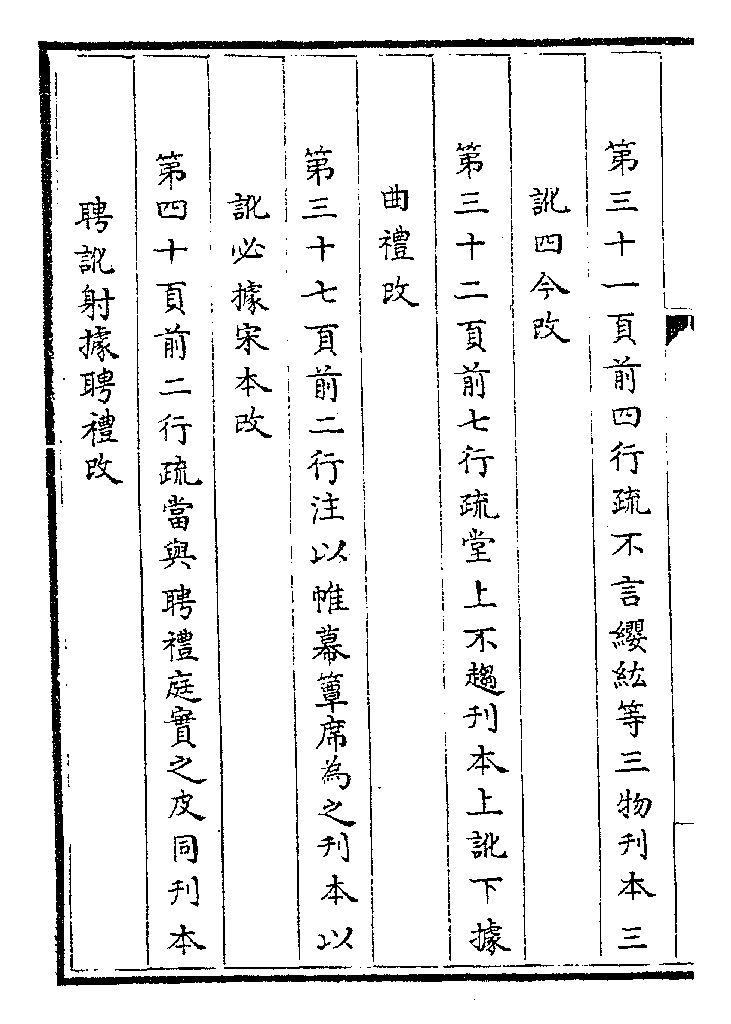 第三十一頁前四行疏不言纓紘等三物刊本三
訛四今改
第三十二頁前七行疏堂上不趨刊本上訛下據
曲禮改
第三十七頁前二行注以帷幕簟席為之刊本以
訛必據宋本改
第四十頁前二行疏當與聘禮庭實之皮同刊本
聘訛射據聘禮改